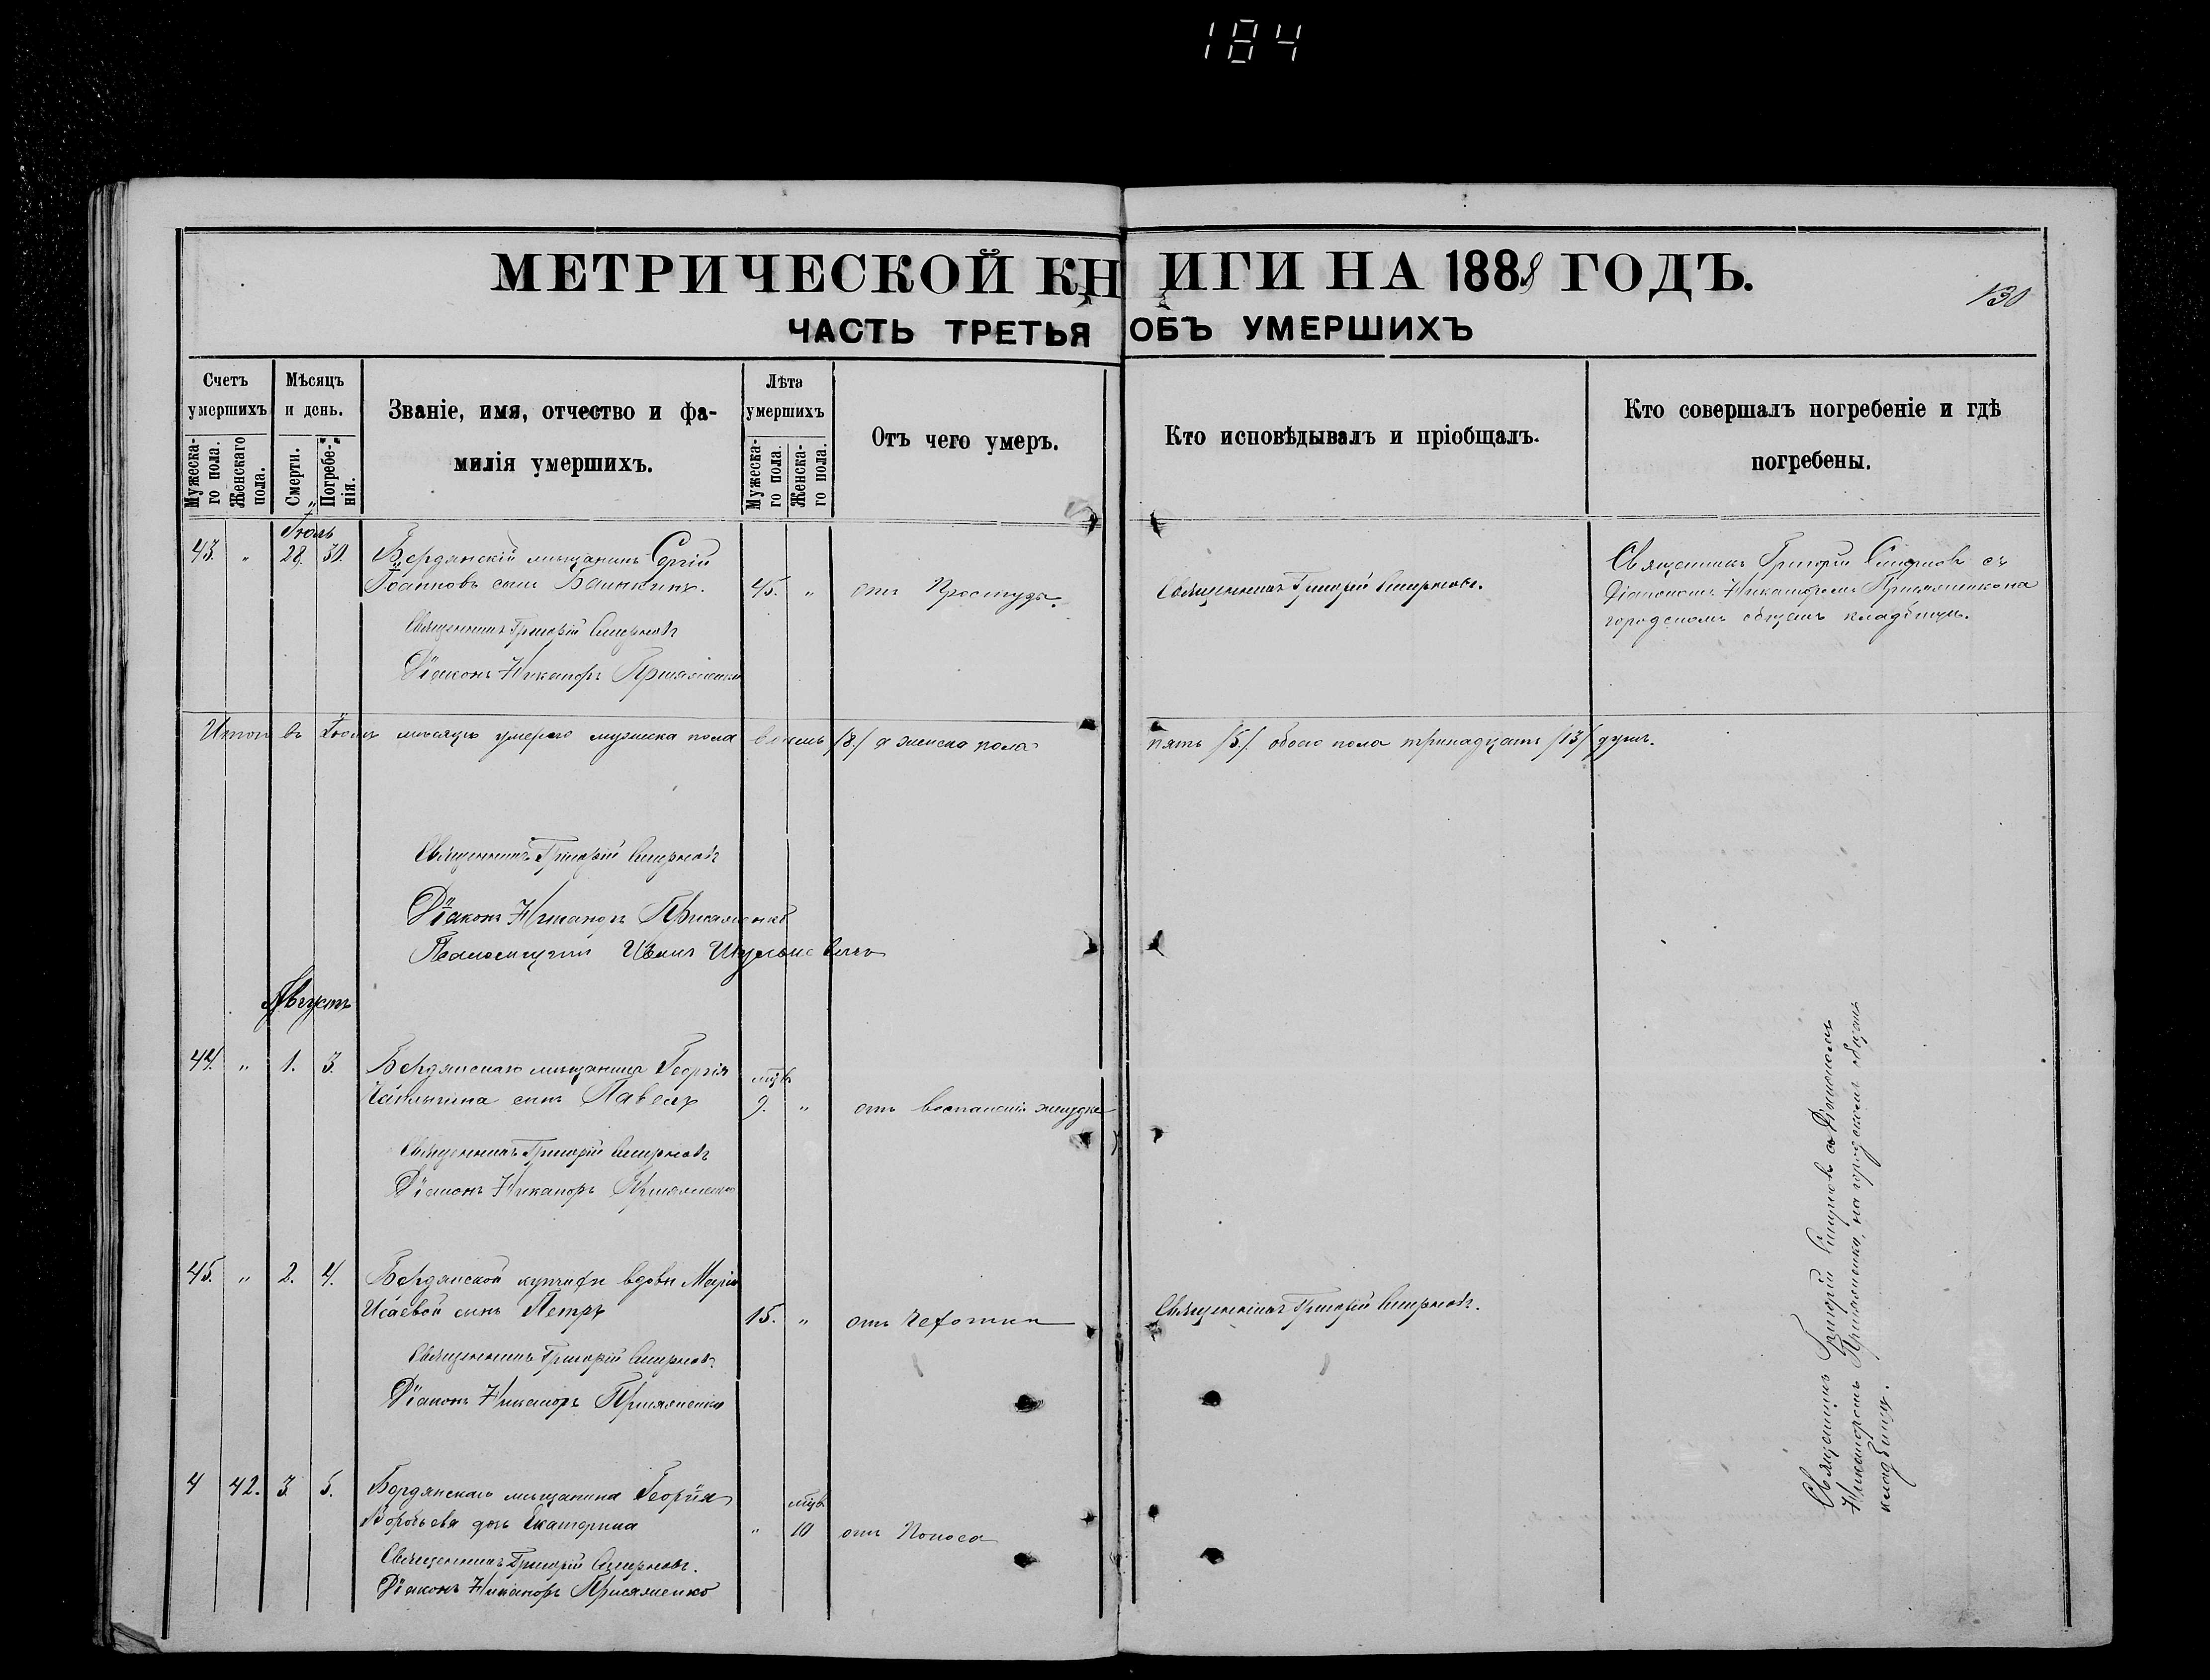 184
МЕТРИЧЕСКОЙ КНИГИ НА 1888 ГОДЪ.
130
ЧАСТЬ ТРЕТЬЯ ОБЪ УМЕРШИХЪ
Счетъ умершихъ
Мужеска-го пола.
Женскаго пола.
Мѣсяцъ и день.
Смерти.
Погребе-нія.
Званіе, имя, отчество и фа-
милія умершихъ.
Лѣта умершихъ
Мужеска-го пола.
Женска-го пола.
Отъ чего умеръ.
Кто исповѣдывалъ и пріобщалъ.
Кто совершалъ погребеніе и гдѣ
погребены.
Іюль
43. " 28. 30. Бердянскій мѣщанинъ Сергій
Іоанновъ сынъ 45. " отъ Простуды.
Священникъ Григорій Смирновъ.
Священникъ Григорій Смирновъ съ
Діакономъ Никаноромъ Присяженко на
городскомъ общемъ кладбищѣ.
Священникъ Григорій Смирновъ
Діаконъ Никаноръ Присяженко
Итого въ Іюлѣ мѣсяцѣ умерло мужеска пола восемь /8/ а женска пола пять /5/ обоего пола тринадцать /13/ душъ.
Священникъ Григорій Смирновъ
Діаконъ Никаноръ Присяженко
Псаломщикъ Иванъ
Августъ
44. " 1. 3. Бердянскаго мѣщанина Георгія
сынъ Павелъ 9. " отъ воспаленія желудка
Священникъ Григорій Смирновъ
Діаконъ Никаноръ Присяженко
45. " 2. 4. Бердянской купчихи вдовы Маріи
Исаевой сынъ Петръ 15. " отъ Чахотки
Священникъ Григорій Смирновъ.
Священникъ Григорій Смирновъ.
Діаконъ Никаноръ Присяженко
4 42. 3. 5. Бердянскаго мѣщанина Георгія
Воробьева дочь Екатерина " 10 отъ Поноса
Священникъ Григорій Смирновъ.
Діаконъ Никаноръ Присяженко
Священникъ Григорій Смирновъ съ Діакономъ
Никаноромъ Присяженко, на городскомъ общемъ
кладбищѣ.